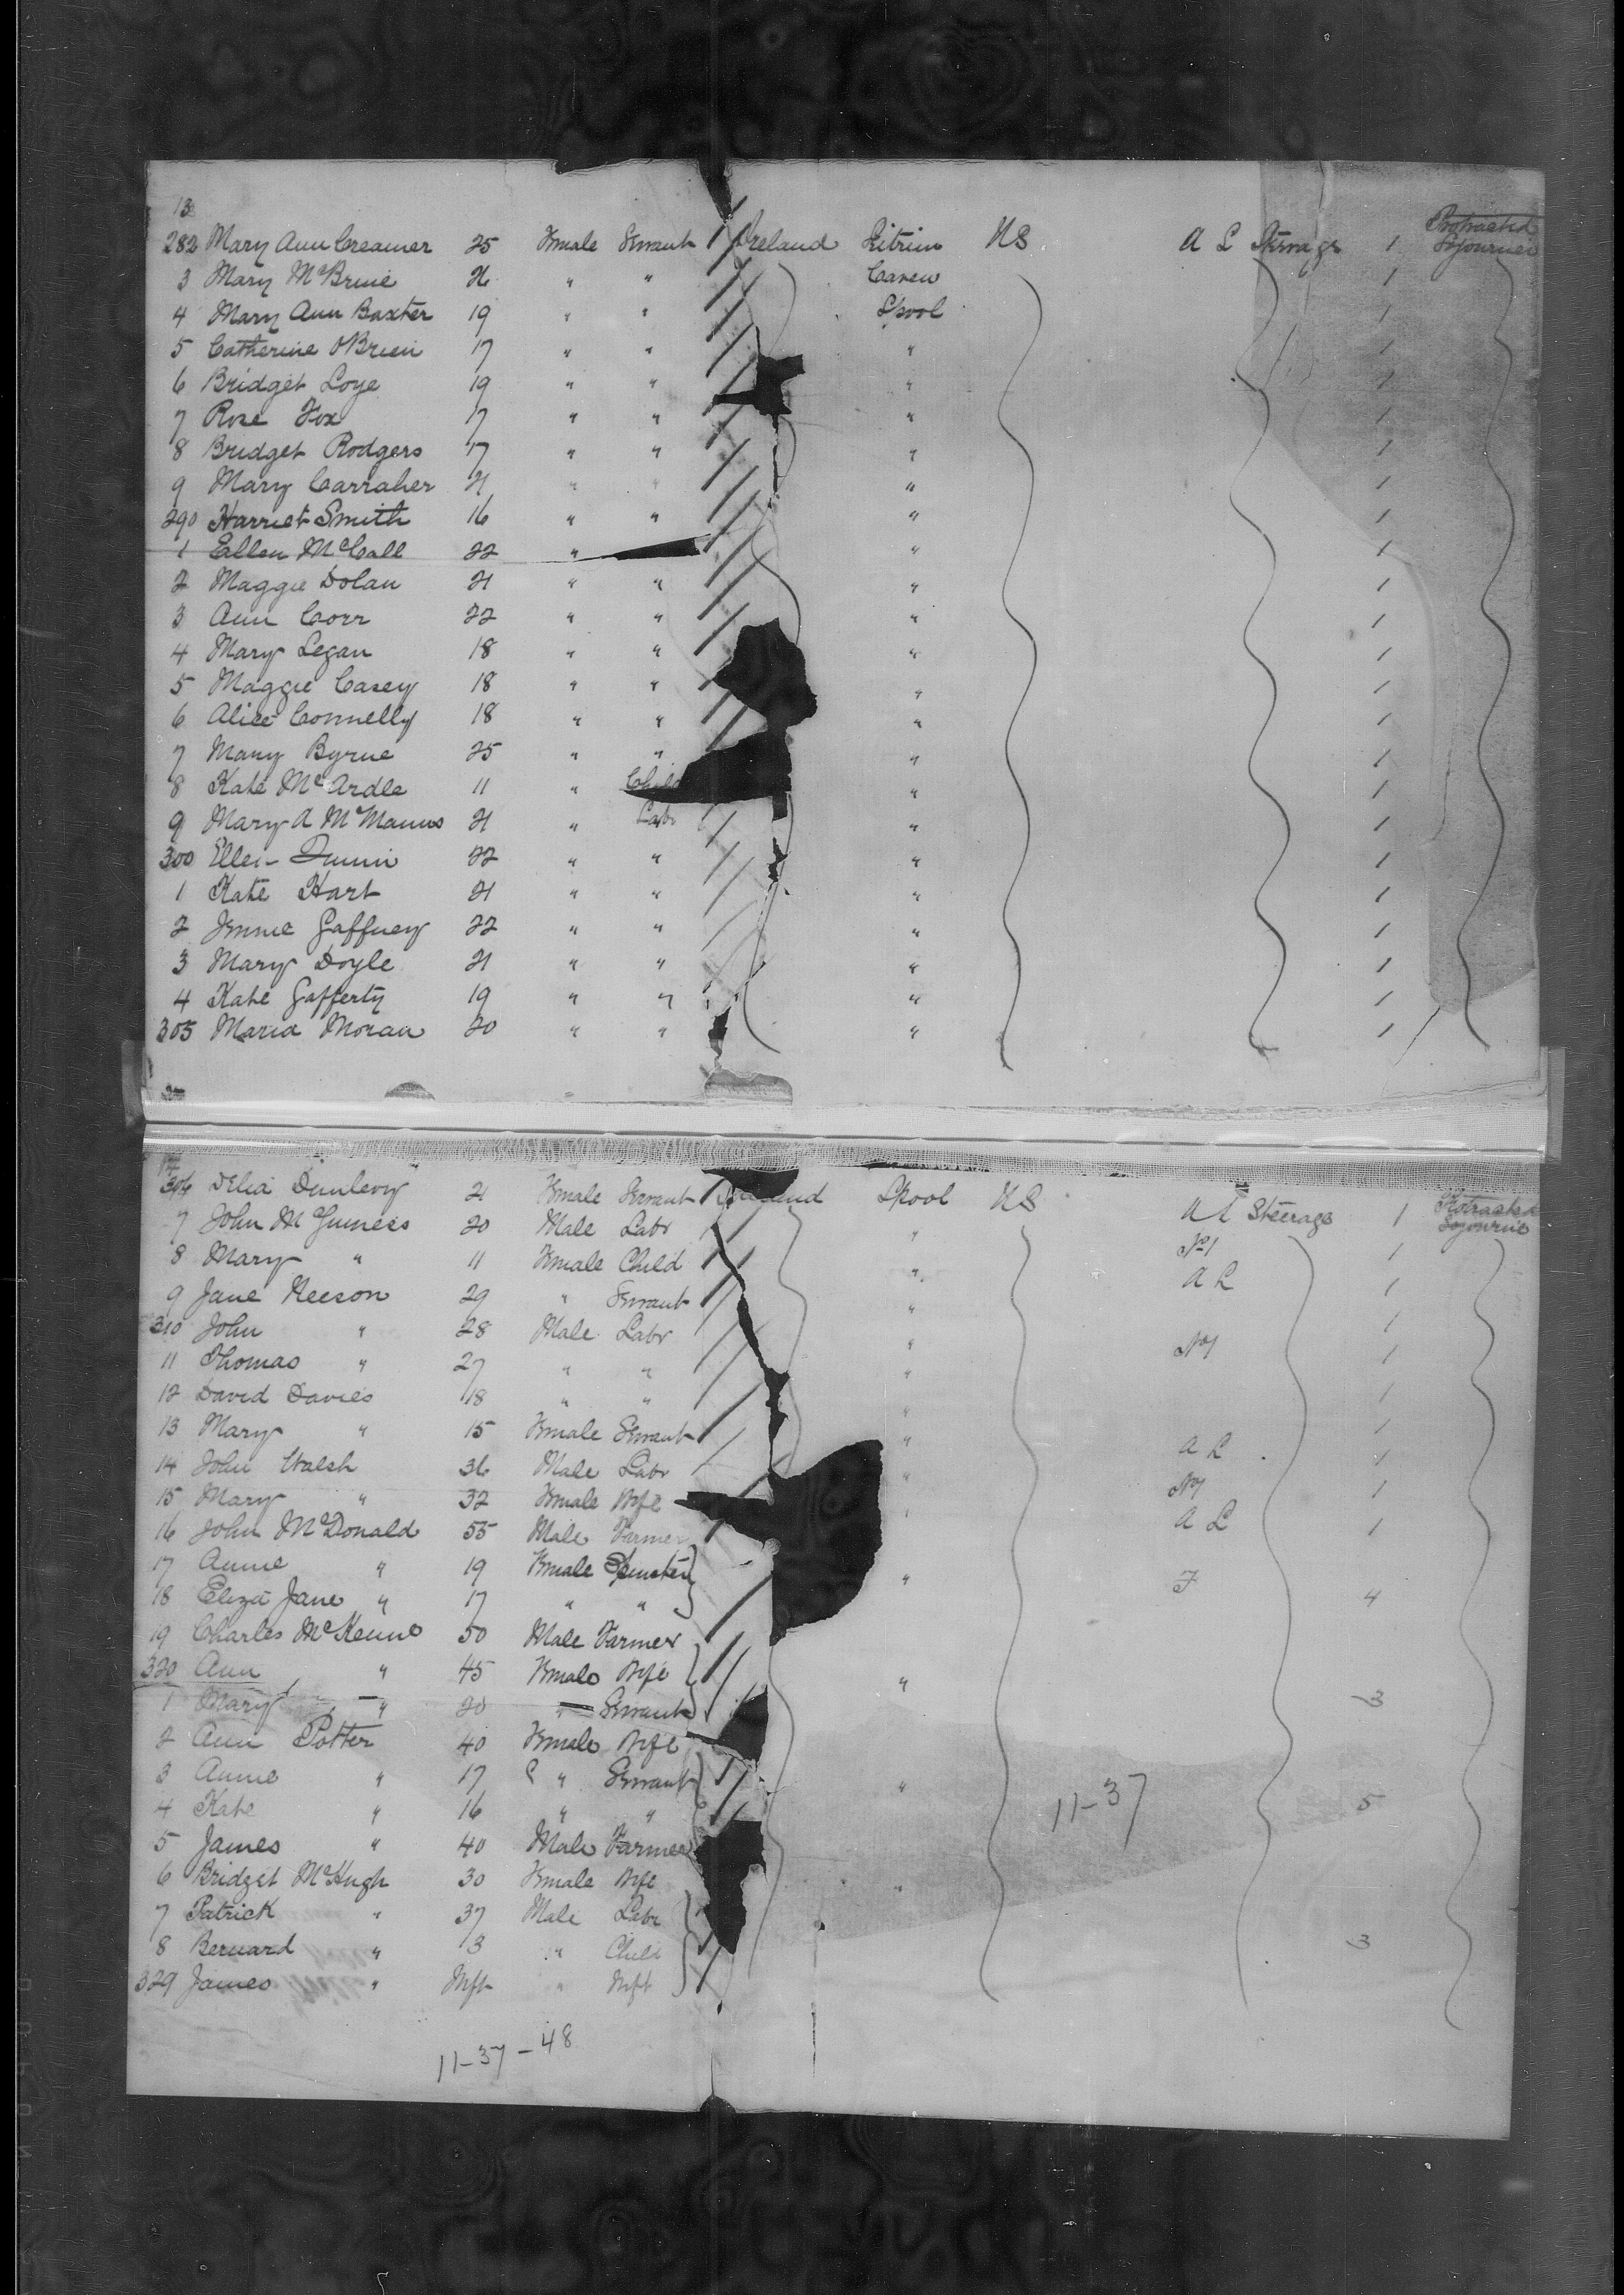 13
282 Mary Ann Creamer 25 Female Servant / Ireland Leitrim US A L Steerage 1 Protracted Sojourner
3 Mary McBrine 26 " " Caven 1
4 Mary Ann Baxter 19 " " Lpool 1
5 Catherine OBrien 17 " " " 1
6 Bridget Loye 19 " " " 1
7 Rose Fox 17 " " " 1
8 Bridget Rodgers 17 " " " 1
9 Mary Carraher 21 " " " 1
290 Harriet Smith 16 " " " 1
1 Ellen McCall 22 " " 1
2 Maggie Dolan 21 " " " 1
3 Ann Corr 22 " " " 1
4 Mary Legan 18 " " " 1
5 Maggie Casey 18 " " " 1
6 Alice Connelly 18 " " " 1
7 Mary Byrne 25 " " " 1
8 Kate McArdle 11 " Child " 1
9 Mary A McManus 21 " Labr " 1
300 Ellen 22 " " " 1
1 Kate Hart 21 " " " 1
2 Gaffney 22 " " " 1
3 Mary Doyle 21 " " " 1
4 Kate Gafferty 19 " " " 1
305 Maria Moran 20 " " " 1
306 Delia Dunlevy 21 Female Servant Ireland Lpool US A L Steerage 1 Protracted Sojourne
7 John McGuiness 20 Male Labr " No1 1
8 Mary " 11 Female Child " A L 1
9 Jane Keeson 29 " Servant " 1
310 John " 28 Male Labr " No1 1
11 Thomas " 27 " " " 1
12 David Davies 18 " " " 1
13 Mary " 15 Female Servant " A L 1
14 John Walsh 36 Male Labr " No1 1
15 Mary " 32 Female Wife " A L 1
16 John McDonald 55 Male Farmer
17 Annie " 19 Female Spinster " F 4
18 Eliza Jane " 17 " "
19 Charles McKenna 50 Male Farmer
320 Ann " 45 Female Wife " 3
1 Mary " 20 " Servant
2 Ann Potter 40 Female Wife
3 Annie " 17 " Servant " 11-37 5
4 Kate " 16 " "
5 James " 40 Male Farmer
6 Bridget McHugh 30 Female Wife "
7 Patrick " 37 Male Labr 3
8 Bernard " 3 " Child
329 James " Inft " Inft
11-37-48